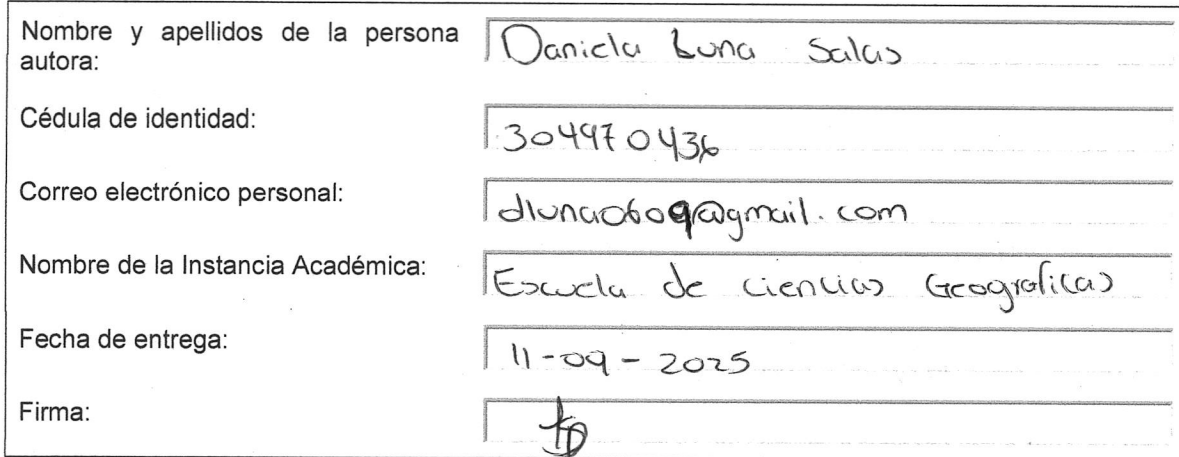 Nombre y apellidos de la persona autora: Daniela Luna Salas
Cédula de identidad: 304970436
Correo electrónico personal: dluna0609@gmail.com
Nombre de la Instancia Académica: Escuela de ciencias Geograficas
Fecha de entrega: 11-09-2025
Firma: